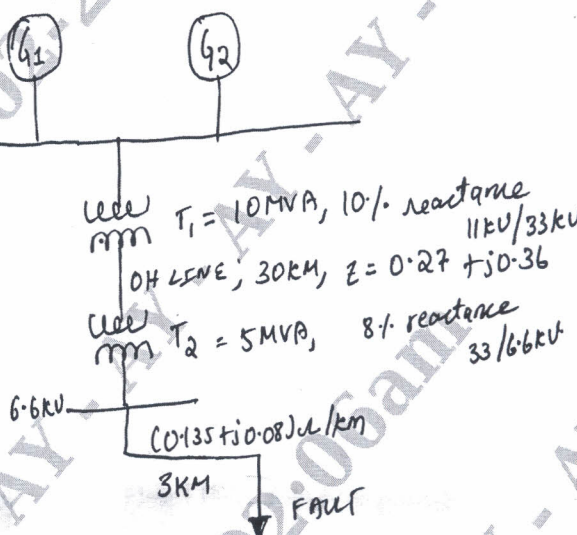 G1
G2
T1 = 10MVA, 10% reactance
11KV/33KV
OH LINE, 30KM, Z = 0.27 + j0.36
T2 = 5MVA, 8% reactance
33/6.6KV
6.6KV
(0.135+j0.08)Ω/km
3KM
FAULT
AY - AY -
02:06am